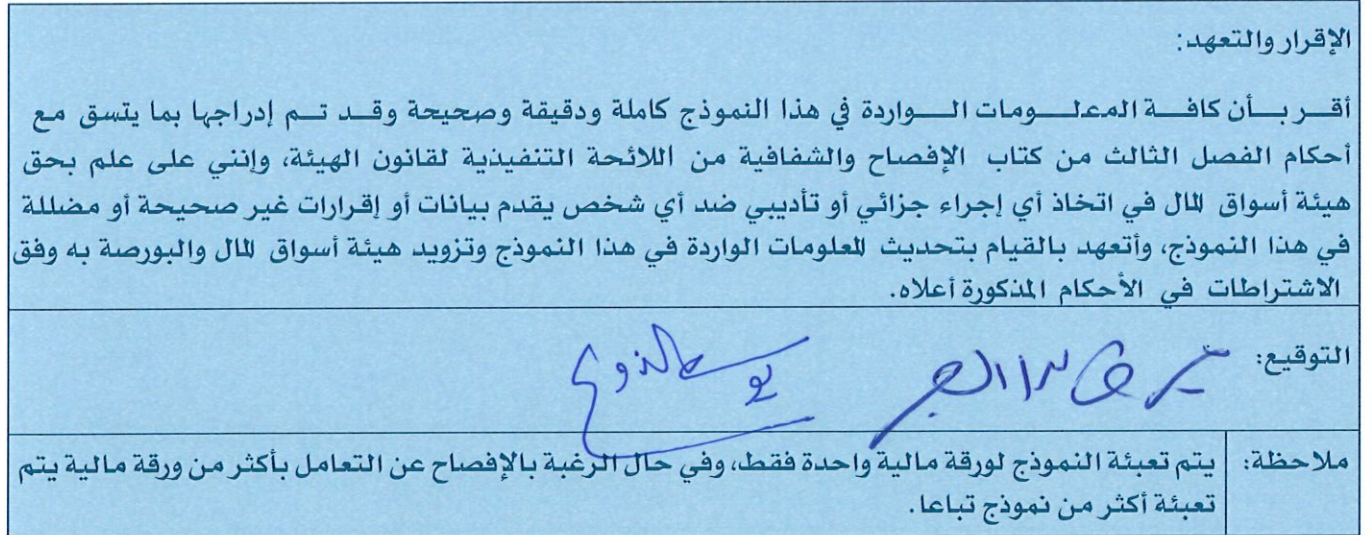 الإقرار والتعهد:
أقر بأن كافة المعلومات الواردة في هذا النموذج كاملة ودقيقة وصحيحة وقد تم إدراجها بما يتسق مع
أحكام الفصل الثالث من كتاب الإفصاح والشفافية من اللائحة التنفيذية لقانون الهيئة، وإنني على علم بحق
هيئة أسواق المال في اتخاذ أي إجراء جزائي أو تأديبي ضد أي شخص يقدم بيانات أو إقرارات غير صحيحة أو مضللة
في هذا النموذج، وأتعهد بالقيام بتحديث المعلومات الواردة في هذا النموذج وتزويد هيئة أسواق المال والبورصة به وفق
الاشتراطات في الأحكام المذكورة أعلاه.
التوقيع:
ملاحظة: يتم تعبئة النموذج لورقة مالية واحدة فقط، وفي حال الرغبة بالإفصاح عن التعامل بأكثر من ورقة مالية يتم
تعبئة أكثر من نموذج تباعا.